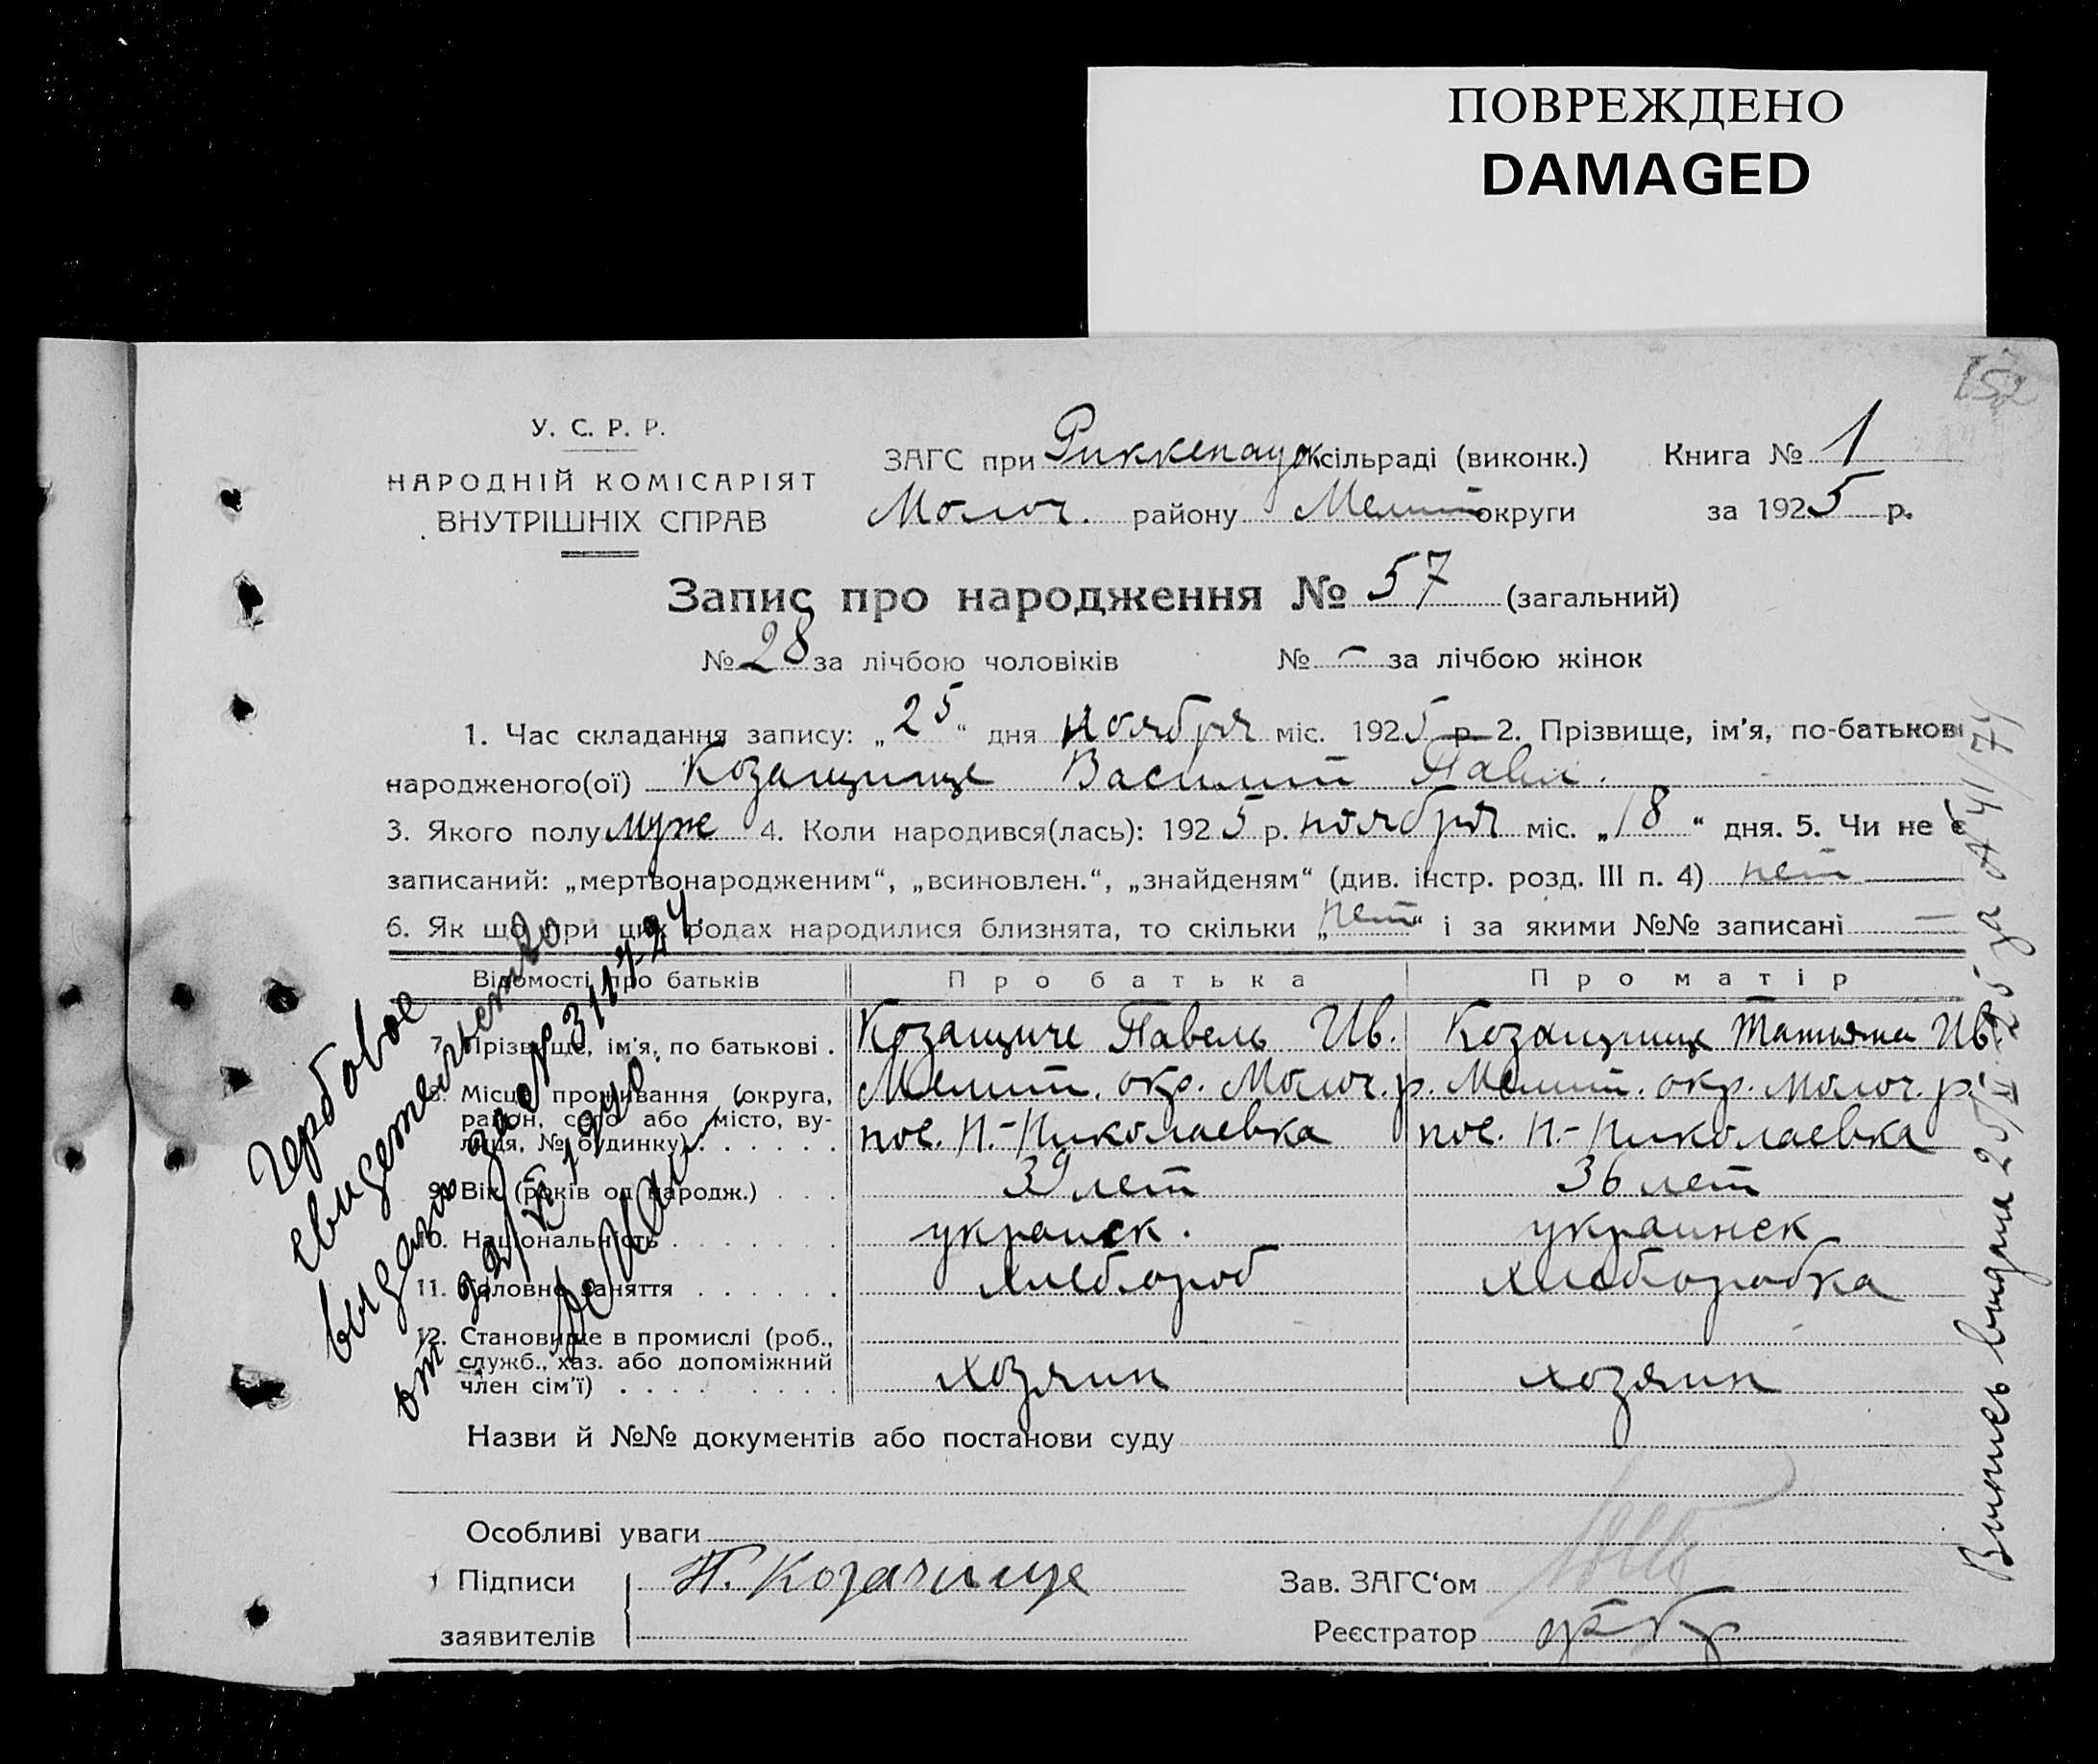 ПОВРЕЖДЕНО
DAMAGED
152
У. С. Р. Р.
НАРОДНІЙ КОМІСАРІЯТ
ВНУТРІШНІХ СПРАВ
ЗАГС при Риккенауск сільраді (виконк.) Книга № 1
Молоч. району Мелит округи за 1925 р.
Запис про народження № 57 (загальний)
№ 28 за лічбою чоловіків № — за лічбою жінок
1. Час складання запису: „25“ дня ноября міс. 1925 р. 2. Прізвище, ім'я, по-батькові
народженого(ої) Козащище Василий Павл.
3. Якого полу муж 4. Коли народився(лась): 1925 р. ноября міс. „18“ дня. 5. Чи не є
записаний: „мертвонародженим“, „всиновлен.“, „знайденям“ (див. інстр. розд. III п. 4) нет
6. Як що при цих родах народилися близнята, то скільки „нет“ і за якими №№ записані —
Відомості про батьків Про батька Про матір
7. Прізвище, ім'я, по батькові . Козащиче Павель Ив. Козащище Татьяна Ив.
8. Місце проживання (округа, район, село або місто, вулиця, № будинку) . . . . . . Мелит. окр. Молоч. р. Мелит. окр. Молоч. р.
пос. Н.-Николаевка пос. Н.-Николаевка
9. Вік (років од народж.) . . . 39 лет 36 лет
10. Національність . . . . . . . украиск. украинск
11. Головне заняття . . . . . . хлебороб хлеборобка
12. Становище в промислі (роб., служб., хаз. або допоміжний член сім'ї) . . . . . . . . . хозяин хозяин
Назви й №№ документів або постанови суду
Особливі уваги
Підписи П. Козачище Зав. ЗАГС‘ом
заявителів Реєстратор
Гербовое
свидетельство
выдано за №
от
Выпись выдана 25/II 25 за №